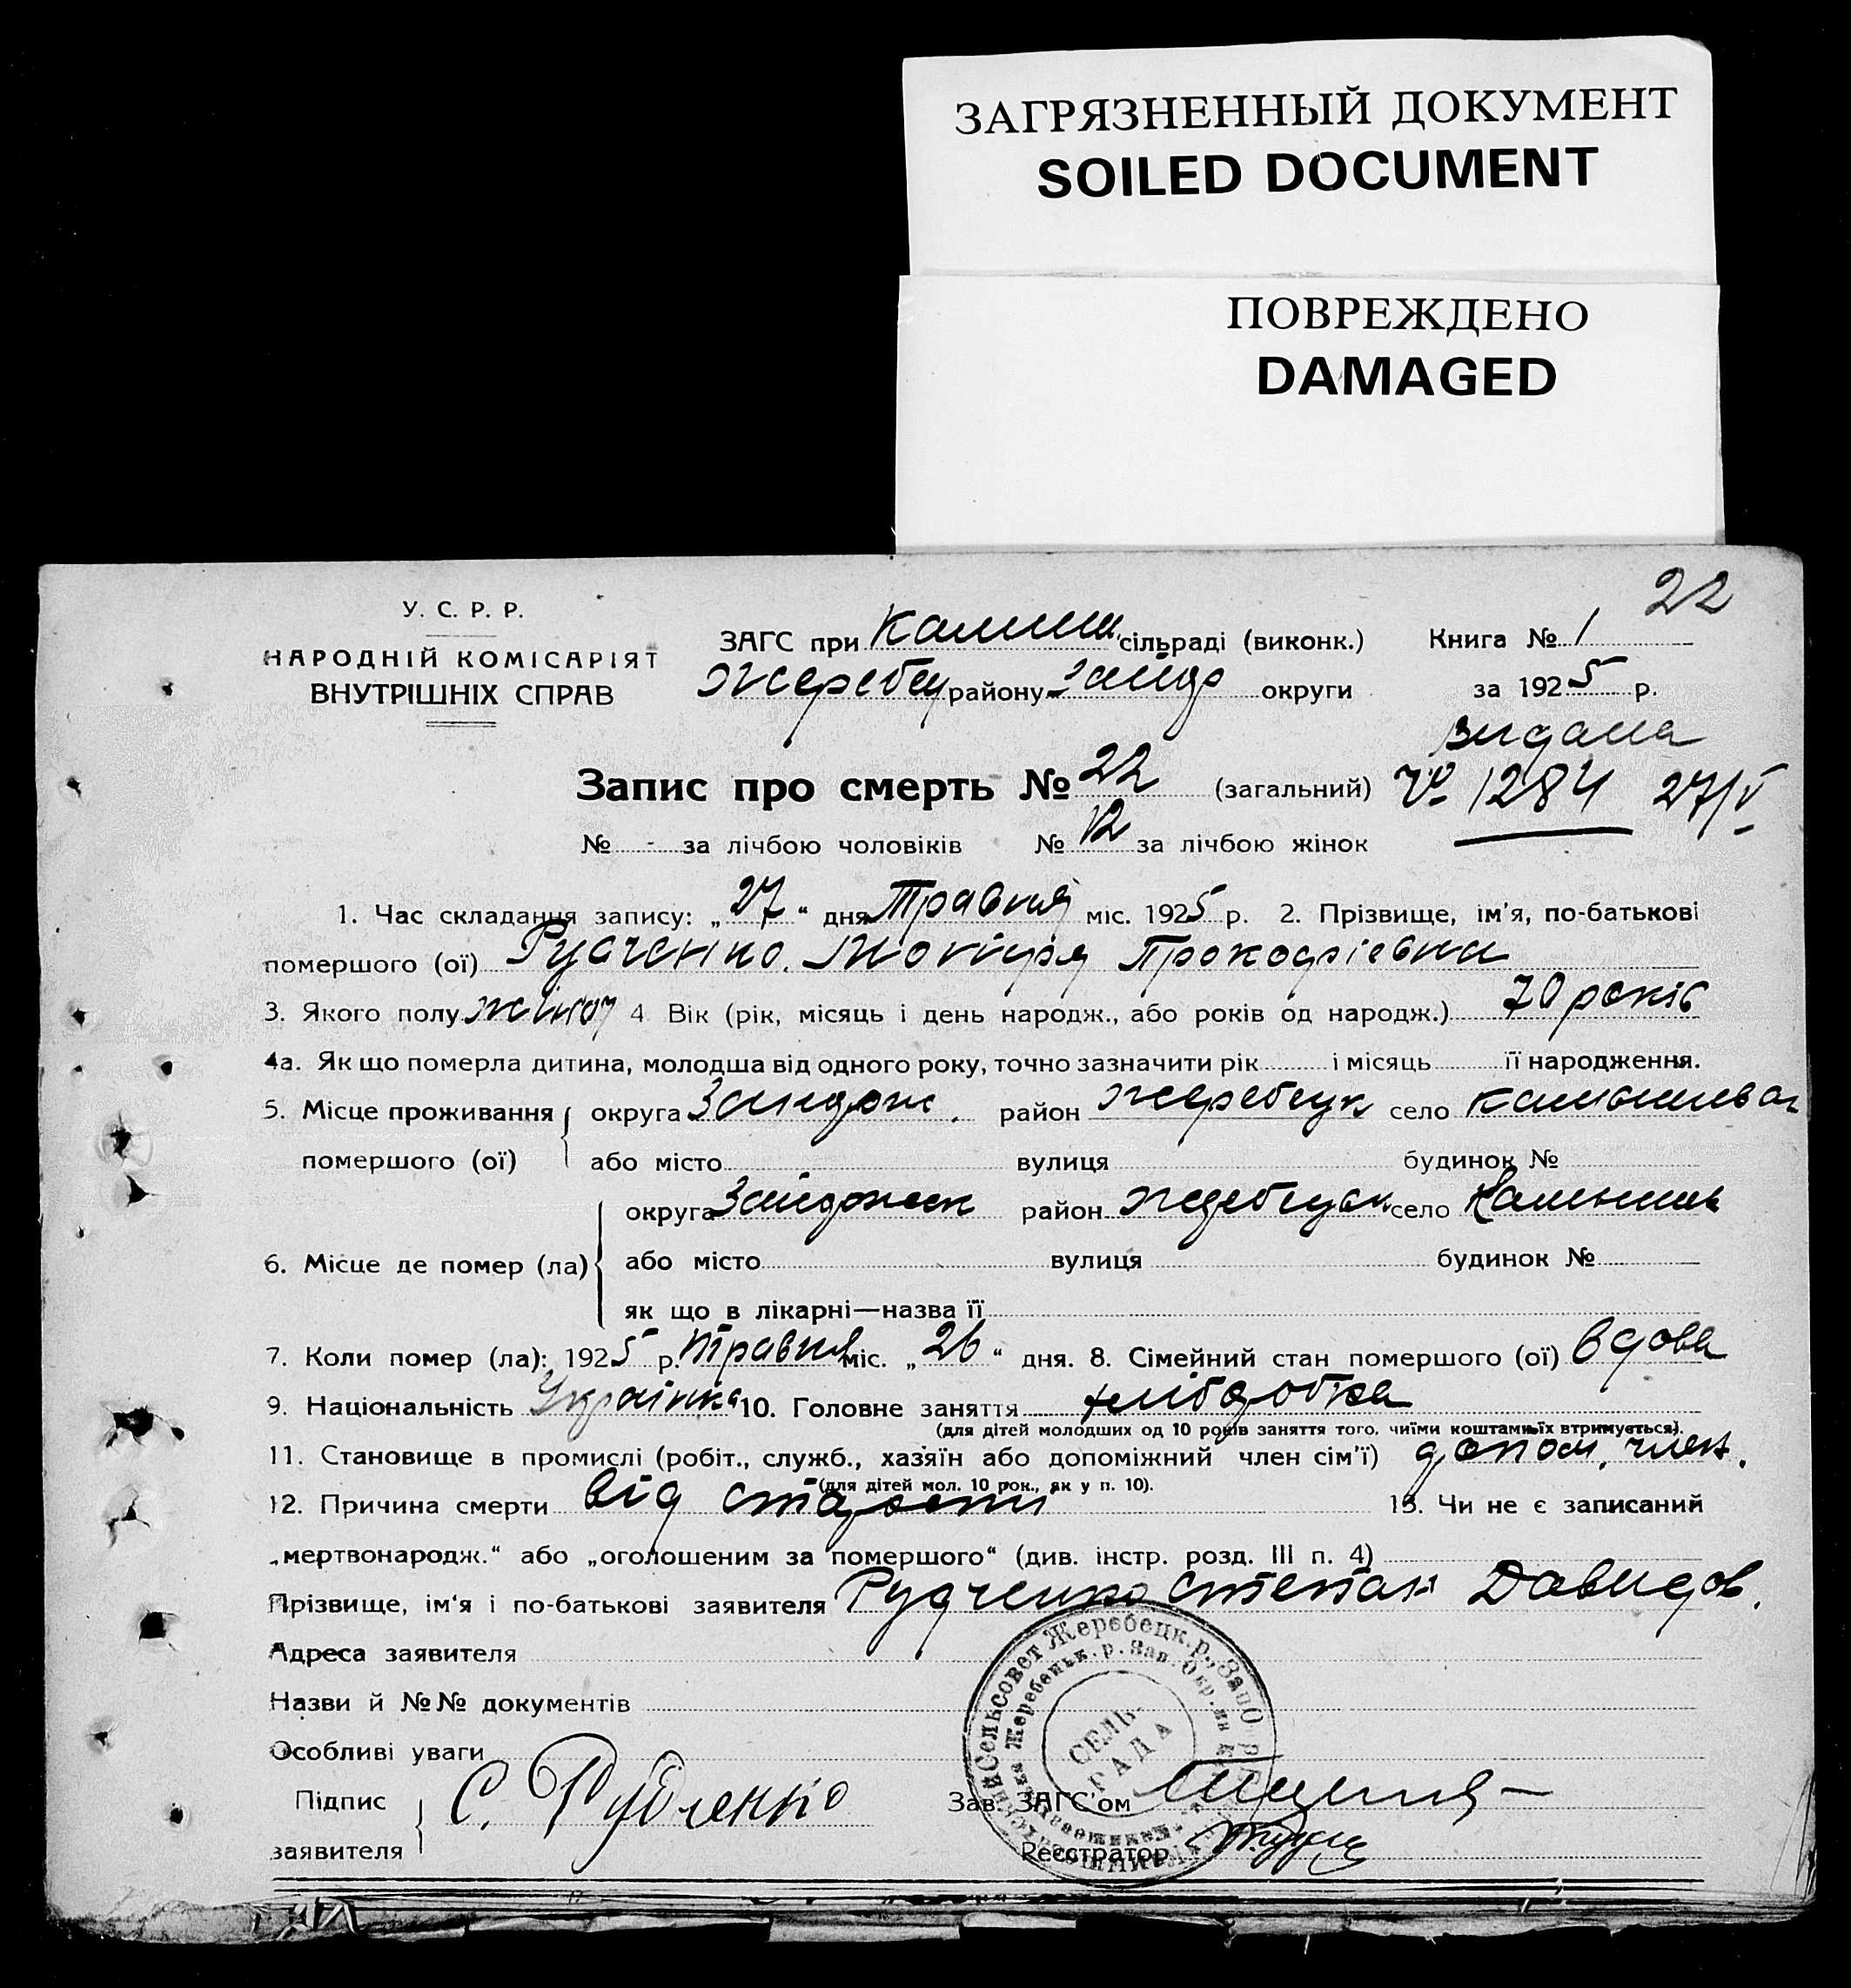 ЗАГРЯЗНЕННЫЙ ДОКУМЕНТ
SOILED DOCUMENT
ПОВРЕЖДЕНО
DAMAGED
22
У. С. Р. Р.
НАРОДНІЙ КОМІСАРІЯТ
ВНУТРІШНІХ СПРАВ
ЗАГС при Камиш. сільраді (виконк.) Книга № 1
Жеребец району округи за 1925 р.
Видана
Запис про смерть № 22 (загальний) № 1284 27/V
№ - за лічбою чоловіків № 12 за лічбою жінок
1. Час складання запису: „27“ дня Травня міс. 1925 р. 2. Прізвище, ім'я, по-батькові
помершого (ої) Рудченко. Прокофіевна
3. Якого полу жіноч 4 Вік (рік, місяць і день народж., або років од народж.) 70 років
4а. Як що померла дитина, молодша від одного року, точно зазначити рік і місяць її народження.
5. Місце проживання округа район Жеребецк село
помершого (ої) або місто вулиця будинок №
округа район село
6. Місце де помер (ла) або місто вулиця будинок №
як що в лікарні—назва її
7. Коли помер (ла): 1925 р. Травня міс. „26“ дня. 8. Сімейний стан помершого (ої) вдова
9. Національність Українка 10. Головне заняття
(для дітей молодших од 10 років заняття того, чиїми коштами їх втримується).
11. Становище в промислі (робіт., служб., хазяїн або допоміжний член сім'ї) допом. член.
(для дітей мол. 10 рок., як у п. 10).
12. Причина смерти від старости 13. Чи не є записаний
„мертвонародж.“ або „оголошеним за помершого“ (див. інстр. розд. III п. 4)
Прізвище, ім'я і по-батькові заявителя Рудченко Степан Давидов.
Адреса заявителя
Назви й №№ документів
Особливі уваги
СЕЛЬ-
РАДА
Підпис С. Рудченко Зав. ЗАГС'ом
заявителя Реєстратор